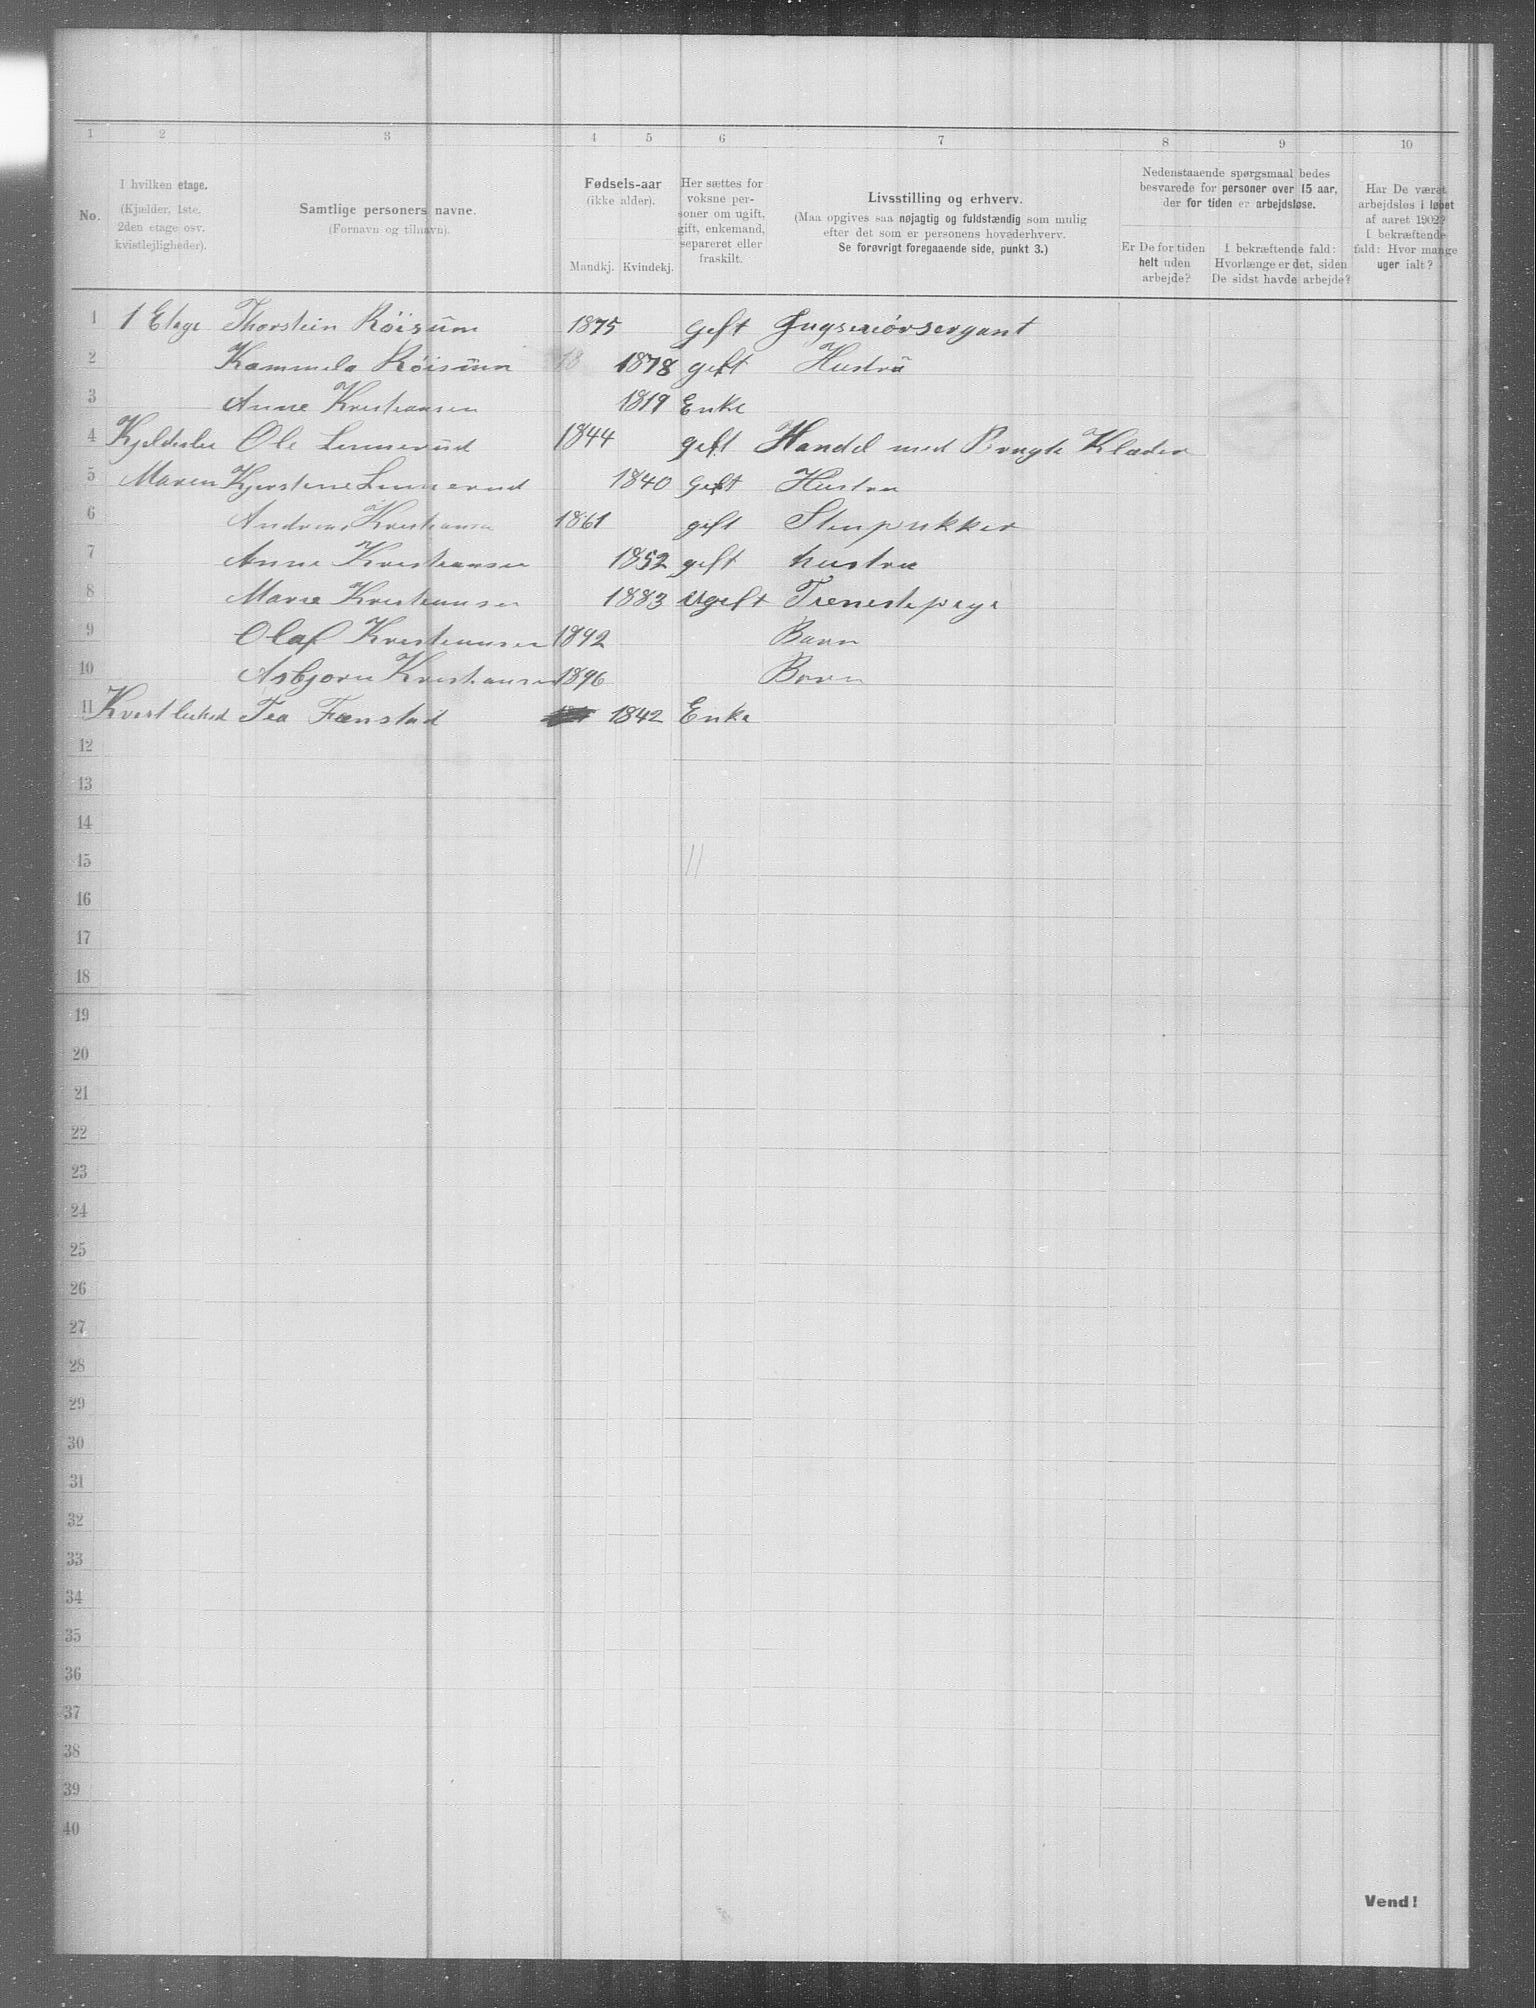 1 2 3 4 5 6 7 8 9 10
No.
I hvilken etage.
(Kjælder, 1ste.
2den etage osv.
kvistlejligheder).
Samtlige personers navne.
(Fornavn og tilnavn).
Fødsels-aar
(ikke alder).
Mandkj. Kvindekj.
Her sættes for
voksne per-
soner om ugift,
gift, enkemand,
separeret eller
fraskilt.
Livsstilling og erhverv.
(Maa opgives saa nøjagtig og fuldstændig som mulig
efter det som er personens hovederhverv.
Se forøvrigt foregaaende side, punkt 3.)
Nedenstaaende spørgsmaal bedes
besvarede for personer over 15 aar,
der for tiden er arbejdsløse.
Er De for tiden
helt uden
arbejde?
I bekræftende fald:
Hvorlænge er det, siden
De sidst havde arbejde?
Har De været
arbejdsløs i løbet
af aaret 1902?
I bekræftende
fald: Hvor mange
uger ialt?
1 1 Etage Thorstein Röisum 1875 gift Jngseniörsergant
2 Kammela Röisum 18 1878 gift Hustru
3 Anne Kristiansen 1819 Enke
4 Ole Linnerud 1844 gift Handel med Brugte Klæder
5 Maren Kjerstine Linnerud 1840 gift Hustru
6 Andreas Kristiansen 1861 gift Stenpukker
7 Anne Kristiansen 1852 gift hustru
8 Marie Kristiansen 1883 ugift Tienestepige
9 Olaf Kristiansen 1892 Barn
10 Asbjorn Kristiansen 1896 Barn
11 Tea Fænstad 1842 Enke
12
13
14
15 11
16
17
18
19
20
21
22
23
24
25
26
27
28
29
30
31
32
33
34
35
36
37
38
39
40
Vend!